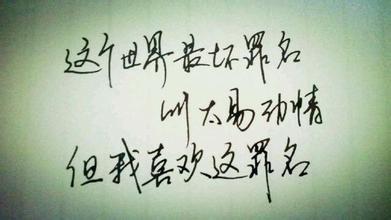 这个世界最坏罪名
叫太易动情
但我喜欢这罪名